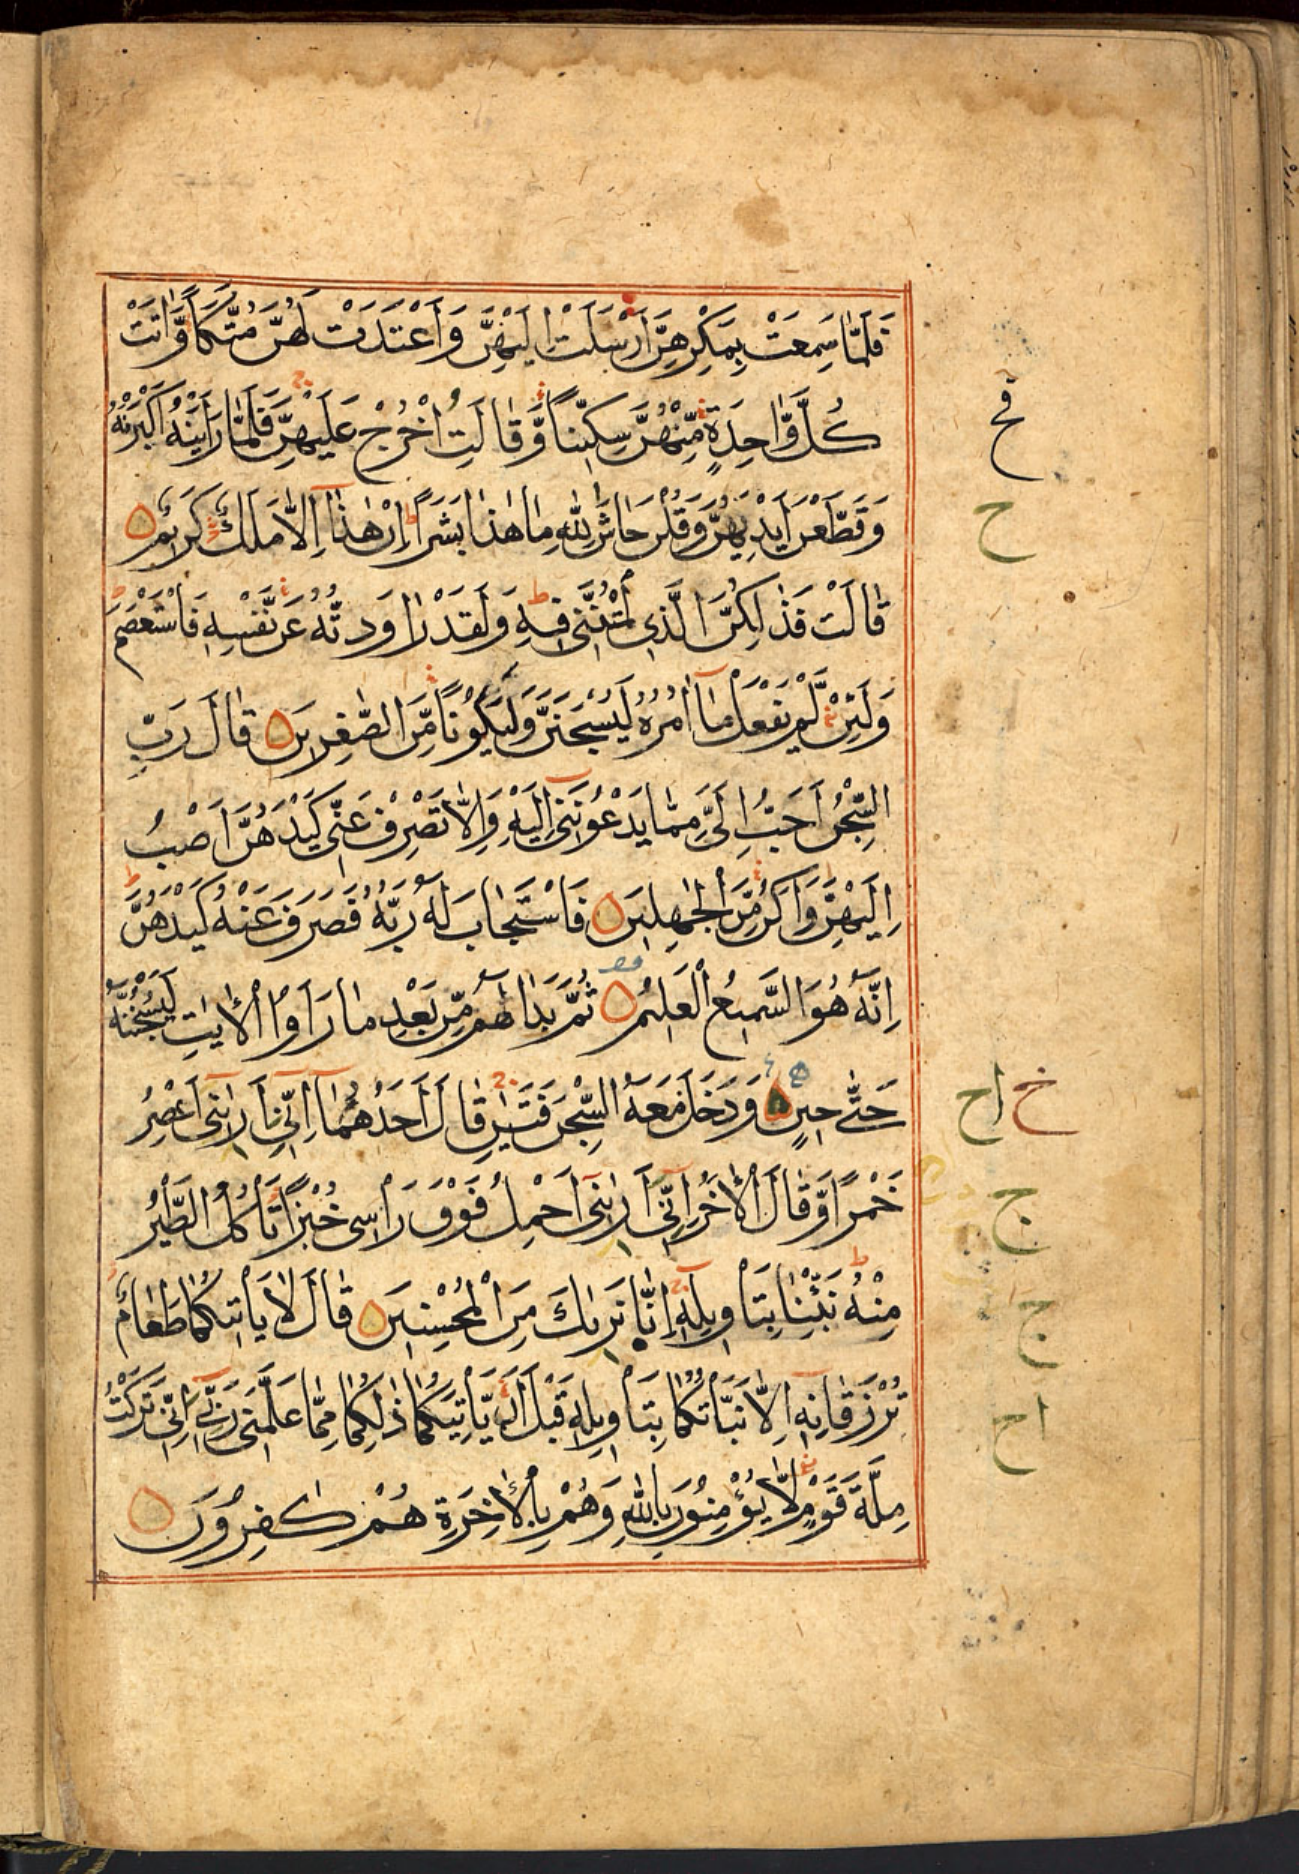 فَلَمَّا سَمِعَتْ بِمَكْرِهِنَّ اَرْسَلَتْ اِلَيْهِنَّ وَاَعْتَدَتْ لَهُنَّ مُتَّكَاً وَّاٰتَتْ
كُلَّ وَّاحِدَةٍ مِّنْهُنَّ سِكِّيْنًا وَّقَالَتِ اخْرُجْ عَلَيْهِنَّ فَلَمَّا رَاَيْنَهٗ اَكْبَرْنَهٗ
وَقَطَّعْنَ اَيْدِيَهُنَّ وَقُلْنَ حَاشَ لِلّٰهِ مَا هٰذَا بَشَرًا اِنْ هٰذَا اِلَّا مَلَكٌ كَرِيْمٌ
قَالَتْ فَذٰلِكُنَّ الَّذِي لُمْتُنَّنِي فِيْهِ وَلَقَدْ رَاوَدْتُّهٗ عَنْ نَّفْسِهٖ فَاسْتَعْصَمَ
وَلَئِنْ لَّمْ يَفْعَلْ مَا اٰمُرُهٗ لَيُسْجَنَنَّ وَلَيَكُوْنًا مِّنَ الصّٰغِرِيْنَ قَالَ رَبِّ
السِّجْنُ اَحَبُّ اِلَيَّ مِمَّا يَدْعُوْنَنِي اِلَيْهِ وَاِلَّا تَصْرِفْ عَنِّي كَيْدَهُنَّ اَصْبُ
اِلَيْهِنَّ وَاَكُنْ مِّنَ الْجٰهِلِيْنَ فَاسْتَجَابَ لَهٗ رَبُّهٗ فَصَرَفَ عَنْهُ كَيْدَهُنَّ
اِنَّهٗ هُوَ السَّمِيْعُ الْعَلِيْمُ ثُمَّ بَدَا لَهُمْ مِّنْ بَعْدِ مَا رَاَوُا الْاٰيٰتِ لَيَسْجُنُنَّهٗ
حَتّٰى حِيْنٍ وَدَخَلَ مَعَهُ السِّجْنَ فَتَيٰنِ قَالَ اَحَدُهُمَا اِنِّي اَرٰىنِي اَعْصِرُ
خَمْرًا وَّقَالَ الْاٰخَرُ اِنِّي اَرٰىنِي اَحْمِلُ فَوْقَ رَاْسِي خُبْزًا تَاْكُلُ الطَّيْرُ
مِنْهُ نَبِّئْنَا بِتَاْوِيْلِهٖ اِنَّا نَرٰىكَ مِنَ الْمُحْسِنِيْنَ قَالَ لَا يَاْتِيْكُمَا طَعَامٌ
تُرْزَقَانِهٖ اِلَّا نَبَّاْتُكُمَا بِتَاْوِيْلِهٖ قَبْلَ اَنْ يَّاْتِيَكُمَا ذٰلِكُمَا مِمَّا عَلَّمَنِي رَبِّي اِنِّي تَرَكْتُ
مِلَّةَ قَوْمٍ لَّا يُؤْمِنُوْنَ بِاللّٰهِ وَهُمْ بِالْاٰخِرَةِ هُمْ كٰفِرُوْنَ